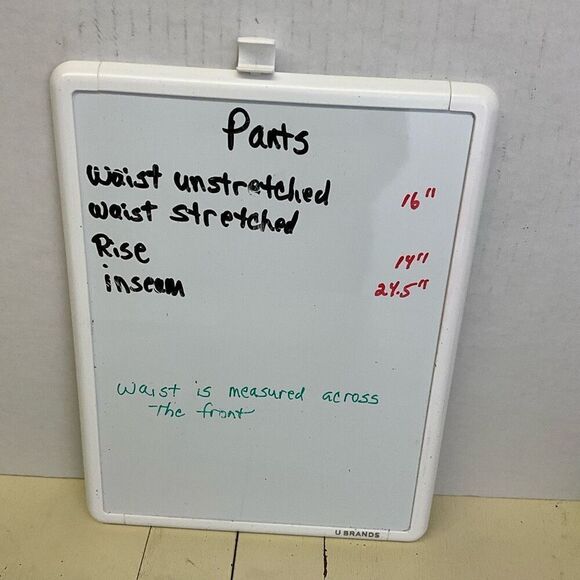 Pants
waist unstretched 16"
waist stretched
Rise 14"
inseam 24.5"
waist is measured across
the front
U BRANDS